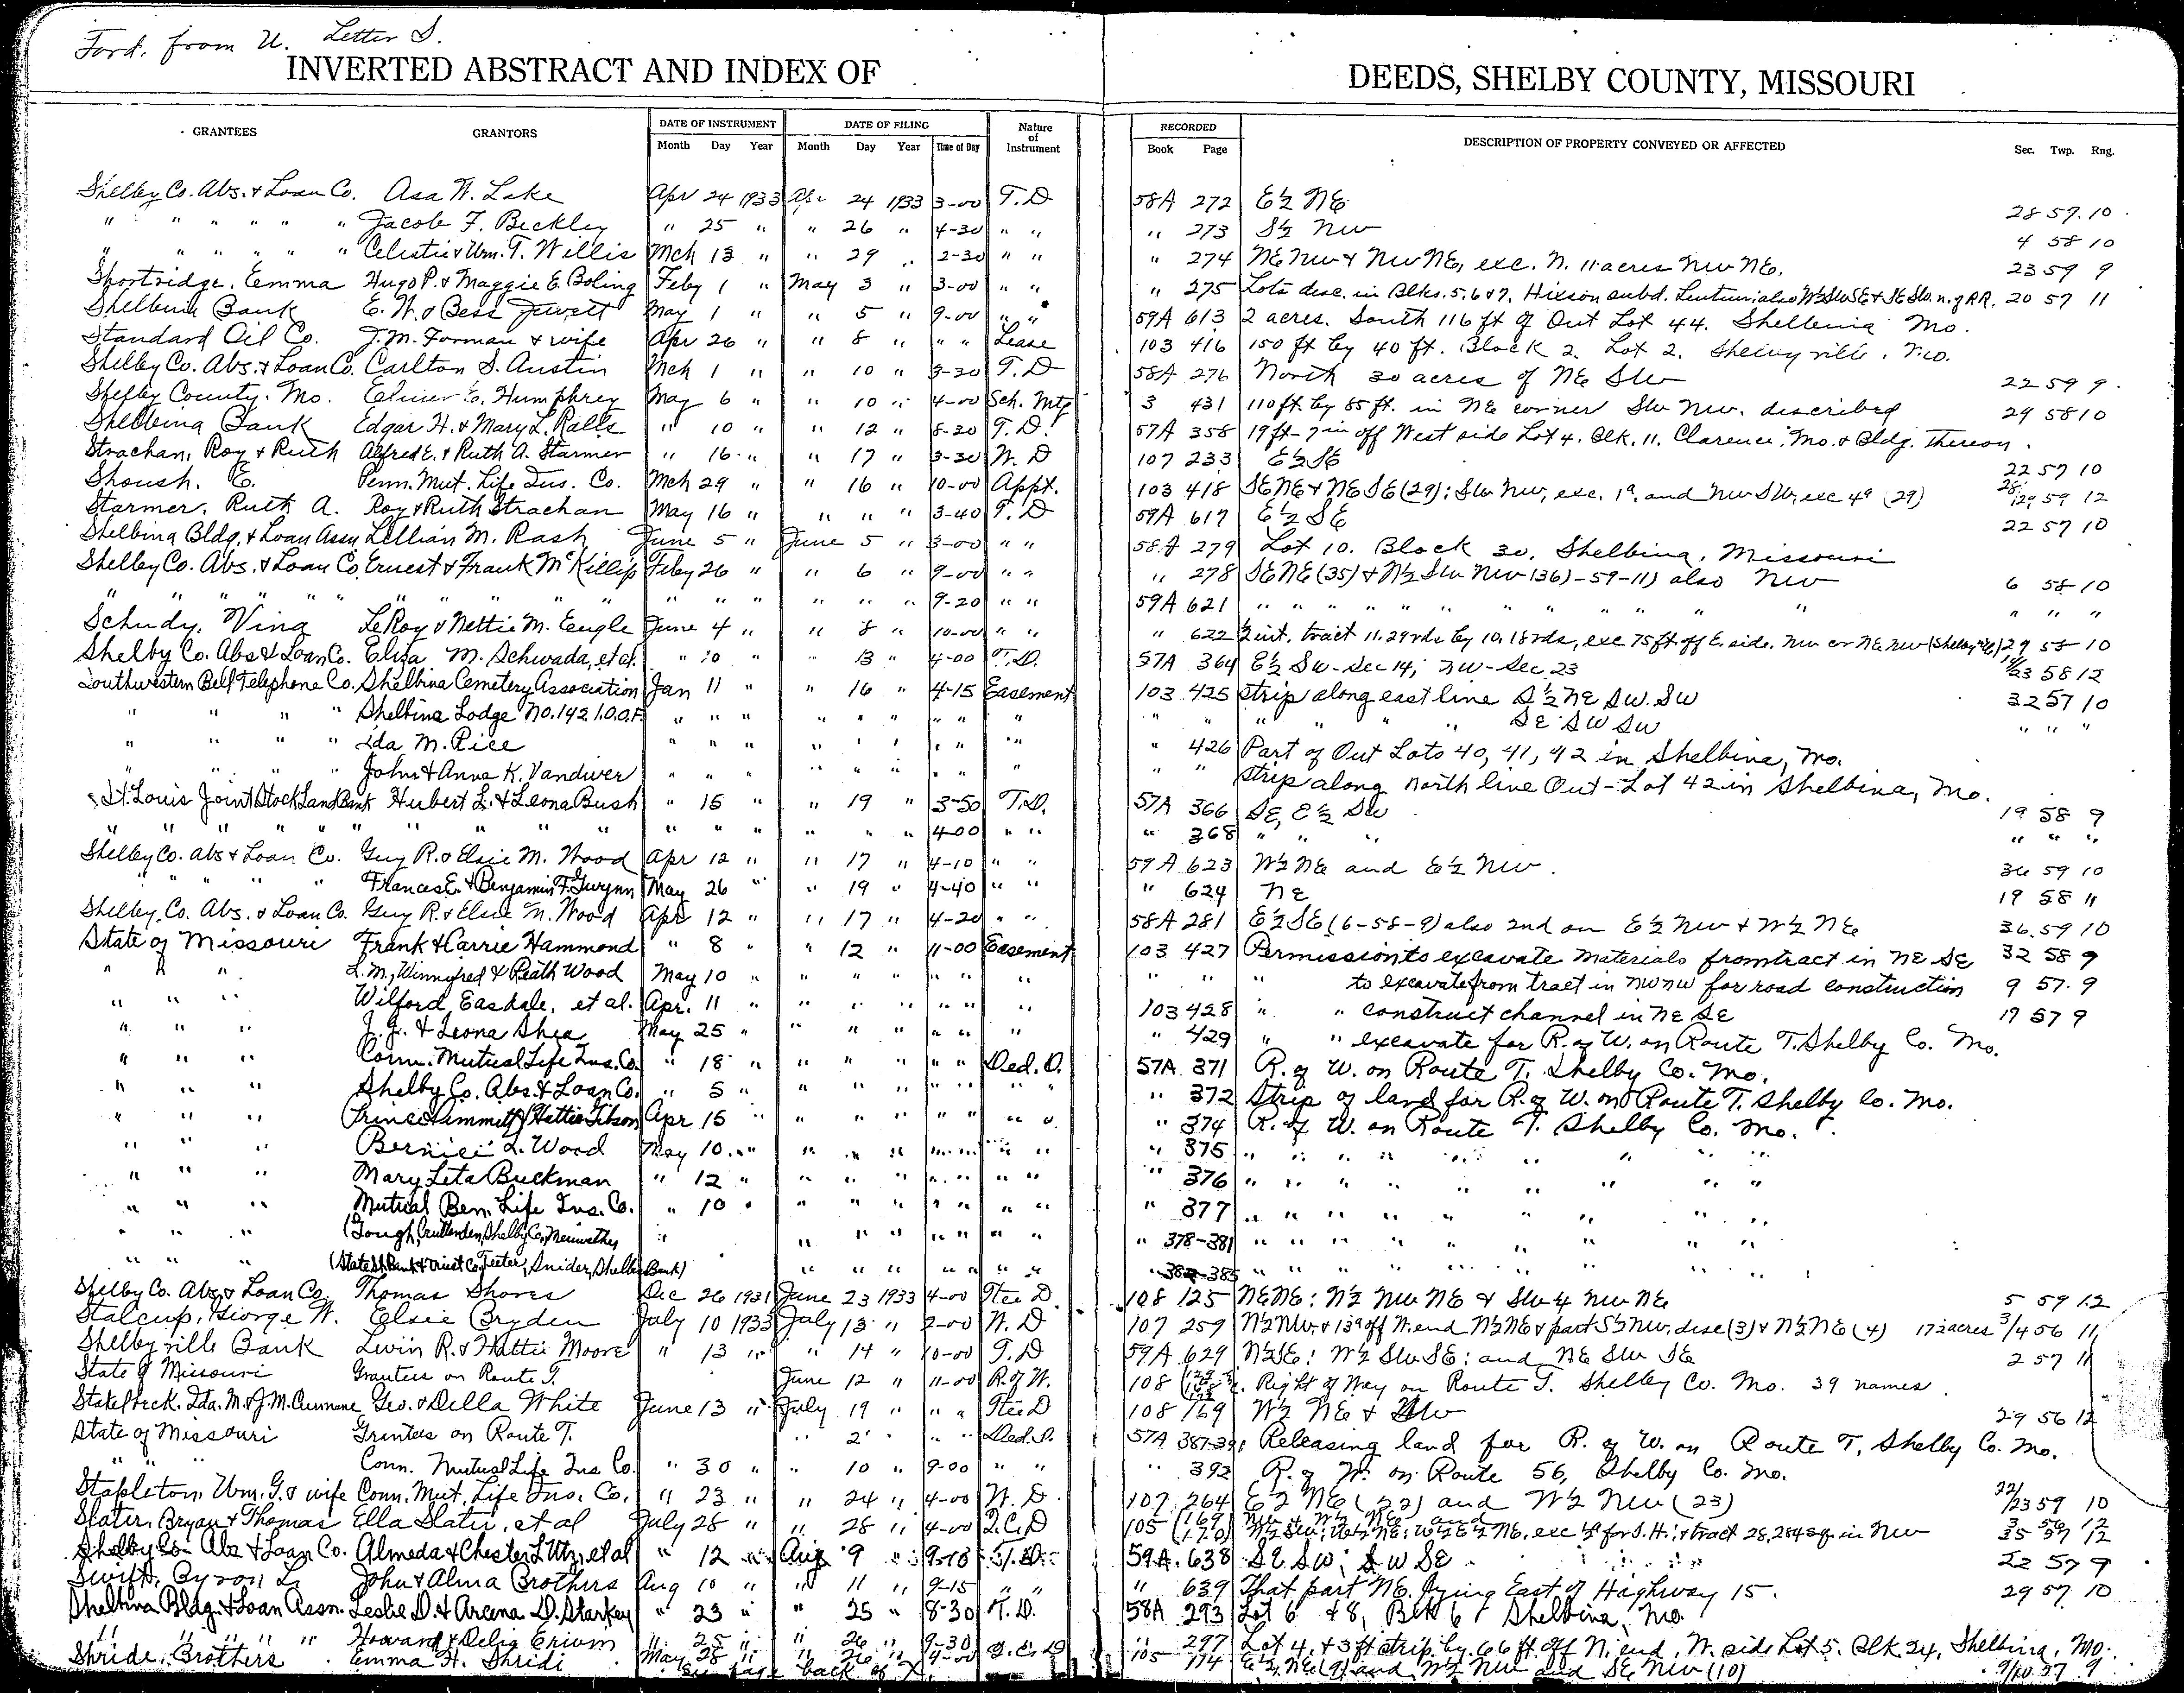 Ford. from U. Letter S.
INVERTED ABSTRACT AND INDEX OF DEEDS, SHELBY COUNTY, MISSOURI
GRANTEES GRANTORS DATE OF INSTRUMENT DATE OF FILING Nature of Instrument RECORDED DESCRIPTION OF PROPERTY CONVEYED OR AFFECTED
Month Day Year Month Day Year Time of Day Book Page Sec. Twp. Rng.
Shelby Co. Abs. & Loan Co. Asa W. Lake Apr 24 1933 Apr 24 1933 3-00 T.D 58A 272 E½ NE 28 57 10
" " " " " " Jacob F. Beckley " 25 " " 26 " 4-30 " " " 273 S½ NW 4 58 10
" " " " " " Celestie & Wm. T. Willis Mch 13 " " 29 " 2-30 " " " 274 NE NW & NW NE, exc. N. 11 acres NW NE. 23 59 9
Shortridge, Emma Hugo P. & Maggie E. Boling Feby 1 " May 3 " 3-00 " " " 275 Lots desc. in Blks. 5, 6 & 7, Hixson subd. Lentner; also W½ SW SE & SE SW. n. of RR. 20 57 11
Shelbina Bank E. W. & Bess Jewett May 1 " " 5 " 9-00 " " 59A 613 2 acres. South 116 ft of Out Lot 44. Shelbina Mo.
Standard Oil Co. J. M. Forman & wife Apr 26 " " 8 " " " Lease 103 416 150 ft by 40 ft. Block 2. Lot 2. Shelbyville, Mo.
Shelby Co. Abs. & Loan Co. Carlton S. Austin Mch 1 " " 10 " 3-30 T.D 58A 276 North 30 acres of NE SW 22 59 9
Shelby County. Mo. Elmer E. Humphrey May 6 " " 10 " 4-00 Sch. Mtg 3 431 110 ft. by 85 ft. in NE corner SW NW. described 29 58 10
Shelbina Bank Edgar H. & Mary L. Ralls " 10 " " 12 " 8-30 T.D. 57A 358 19 ft-7 in off West side Lot 4. Blk. 11. Clarence, Mo. & Bldg. Thereon.
Strachan, Roy & Ruth Alfred E. & Ruth A. Starmer " 16 " " 17 " 3-30 W. D 107 233 E½ SE 22 57 10
Shoush. E. Penn. Mut. Life Ins. Co. Mch 29 " " 16 " 10-00 Appt. 103 418 SE NE & NE SE (29); SW NW, exc. 1a, and NW SW, exc 4a (29) 28/29 59 12
Starmer, Ruth A. Roy & Ruth Strachan May 16 " " " " 3-40 T. D 59A 617 E½ SE 22 57 10
Shelbina Bldg. & Loan Assn Lillian M. Rash June 5 " June 5 " 3-00 " " 58A 279 Lot 10. Block 30, Shelbina, Missouri
Shelby Co. Abs. & Loan Co. Ernest & Frank McKillip Feby 26 " " 6 " 9-00 " " " 278 SE NE (35) & N½ SW NW (36)-59-11) also NW 6 58 10
" " " " " " " " " " " " " " " 9-20 " " 59A 621 " " " " " " " " " " " " "
Schudy, Vina LeRoy & Nettie M. Eugle June 4 " " 8 " 10-00 " " " 622 ½ int. tract 11.29 rds by 10.18 rds, exc 75 ft off E. side. NW cor NE NW (Shelbyville) 29 58 10
Shelby Co. Abs & Loan Co. Eliza M. Schwada, et al. " 10 " " 13 " 4-00 T.D. 57A 364 E½ SW - Sec 14; NW - Sec 23 14/23 58 12
Southwestern Bell Telephone Co. Shelbina Cemetery Association Jan 11 " " 16 " 4-15 Easement 103 425 strip along east line S½ NE SW. SW 32 57 10
" " " " Shelbina Lodge No. 142 I.O.O.F. " " " " " " " " " " " " " " " SE SW SW " " "
" " " " Ida M. Rice " " " " " " " " " " 426 Part of Out Lots 40, 41, 42 in Shelbina, Mo.
" " " " John & Anna K. Vandiver " " " " " " " " " " " strip along north line Out-Lot 42 in Shelbina, Mo.
St. Louis Joint Stock Land Bank Hubert L. & Leona Bush " 15 " " 19 " 3-50 T.D. 57A 366 SE, E½ SW 19 58 9
" " " " " " " " " " " " " " 4-00 " " " 368 " " " " " "
Shelby Co. Abs & Loan Co. Guy R. & Elsie M. Wood Apr 12 " " 17 " 4-10 " " 59A 623 W½ NE and E½ NW. 36 59 10
" " " " " Frances E. & Benjamin F. Gwynn May 26 " " 19 " 4-40 " " " 624 NE 19 58 11
Shelby. Co. Abs. & Loan Co. Guy R. & Elsie M. Wood Apr 12 " " 17 " 4-20 " " 58A 281 E½ SE (6-58-9) also 2nd on E½ NW & W½ NE 36 59 10
State of Missouri Frank & Carrie Hammond " 8 " " 12 " 11-00 Easement 103 427 Permission to excavate materials from tract in NE SE 32 58 9
" " " L. M., Winnyfred & Reath Wood May 10 " " " " " " " " " " to excavate from tract in NW NW for road construction 9 57 9
" " " Wilford Easdale, et al. Apr. 11 " " " " " " " 103 428 " " construct channel in NE SE 17 57 9
" " " J. J. & Leona Shea May 25 " " " " " " " " 429 " " excavate for R. of W. on Route T. Shelby Co. Mo.
" " " Conn. Mutual Life Ins. Co. " 18 " " " " " " Ded. D. 57A 371 R. of W. on Route T. Shelby Co. Mo.
" " " Shelby Co. Abs. & Loan Co. " 5 " " " " " " " " " 372 Strip of land for R. of W. on Route T. Shelby Co. Mo.
" " " Prince Hammett Apr 15 " " " " " " " " " 374 R. of W. on Route T. Shelby Co. Mo.
" " " Bernice L. Wood May 10 " " " " " " " " " 375 " " " " " " " "
" " " Mary Leta Buckman " 12 " " " " " " " " " 376 " " " " " " " "
" " " Mutual Ben. Life Ins. Co. " 10 " " " " " " " " " 377 " " " " " " " "
" " " (Gough, Crittenden, Shelby Co, Meriwether " " " " " " " " " 378-381 " " " " " " " "
" " " (State St Bank & Trust Co, Teeter, Snider, Shelbina Bank) " " " " " " " " 382-385 " " " " " " " "
Shelby Co. Abs. & Loan Co. Thomas Shores Dec 26 1931 June 23 1933 4-00 Stee D. 108 125 NE NE: N½ NW NE & SW¼ NW NE 5 59 12
Stalcup, George W. Elsie Bryden July 10 1933 July 13 " 2-00 W. D 107 259 N½ NW. & 13a off W. end N½ NE & part S½ NW. desc (3) & N½ NE (4) 172 acres 3/4 56 11
Shelbyville Bank Lewin R. & Hattie Moore " 13 " " 14 " 10-00 T. D 59A 629 N½ SE: W½ SW SE: and NE SW SE 2 57 11
State of Missouri Grantees on Route T. June 12 " 11-00 R. of W. 108 Right of Way on Route T. Shelby Co. Mo. 39 names.
Stakebeck. Ida. M. & J. M. Cunnane Geo. & Della White June 13 " July 19 " " " Stee D 108 169 W½ NE & NW 29 56 12
State of Missouri Grantees on Route T. " 2 " " " Ded. D. 57A 387-391 Releasing land for R. of W. on Route T, Shelby Co. Mo.
" " " Conn. Mutual Life Ins Co. " 30 " " 10 " 9-00 " " " 392 R. of W. on Route 56, Shelby Co. Mo.
Stapleton, Wm. G. & wife Conn. Mut. Life Ins. Co. " 23 " " 24 " 4-00 W. D. 107 264 E½ NE (22) and W½ NW (23) 22/23 59 10
Slater, Bryan & Thomas Ella Slater, et al July 28 " " 28 " 4-00 Q.C.D 105 (169 170) NW & W½ NE and N½ SW: W½ NE: W½ E½ NE, exc ½a for S.H.: & tract 28,284 sq. in NW 3 56 12 35 57 12
Shelby Co. Abs & Loan Co. Almeda & Chester L Utz, et al " 12 " Aug 9 " 9-18 T.D. 59A 638 SE SW; SW SE 22 57 9
Swift, Byron L. John & Alma Brothers Aug 10 " " 11 " 9-15 " " " 639 That part NE. lying East of Highway 15. 29 57 10
Shelbina Bldg. & Loan Assn. Leslie D. & Arcena D. Starkey " 23 " " 25 " 8-30 T. D. 58A 293 Lot 6 & 8, Blk 6 Shelbina, Mo.
" " " " " Howard & Delia Erium " 25 " " 26 " 9-30 " " 297 Lot 4, & 3 ft strip by 66 ft. off N. end, W. side Lot 5. Blk. 24, Shelbina, Mo.
Shride, Brothers Emma H. Shride May 28 " " 26 " 4-00 Q.C.D 105 174 E½ NE (9) and W½ NW and SE NW (10) 9/10 57 9
See page back of